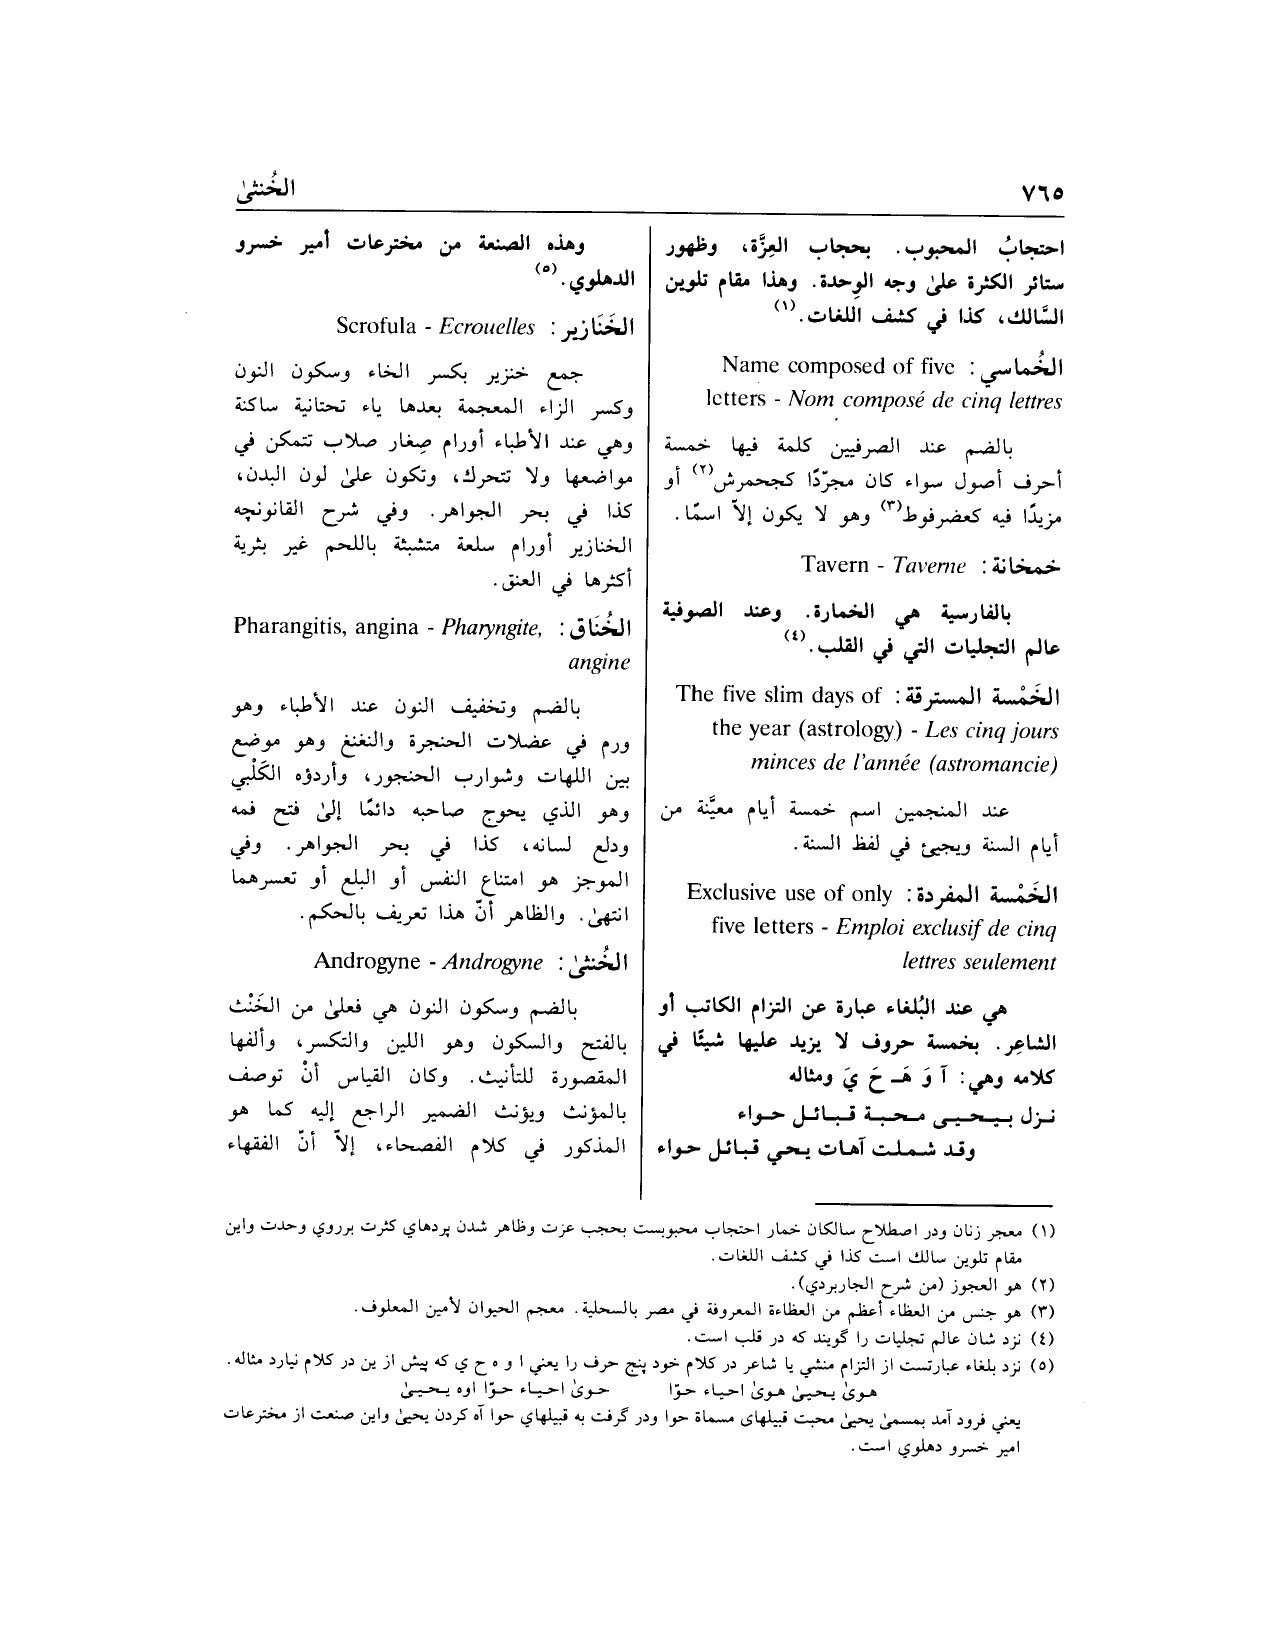 ٧٦٥
الخُنثىٰ
احتجابُ المحبوب. بحجاب العِزَّة، وظهور
ستائر الكثرة علىٰ وجه الوِحدة. وهذا مقام تلوين
السَّالك، كذا في كشف اللغات.(١)
الخُماسي: Name composed of five
letters - Nom composé de cinq lettres
بالضم عند الصرفيين كلمة فيها خمسة
أحرف أصول سواء كان مجرّدًا كجحمرش(٢) أو
مزيدًا فيه كعضرفوط(٣) وهو لا يكون إلاّ اسمًا.
خمخانة: Tavern - Taverne
بالفارسية هي الخمارة. وعند الصوفية
عالم التجليات التي في القلب.(٤)
الخَمْسة المسترقة: The five slim days of
the year (astrology) - Les cinq jours
minces de l'année (astromancie)
عند المنجمين اسم خمسة أيام معيَّنة من
أيام السنة ويجيئ في لفظ السنة.
الخَمْسة المفردة: Exclusive use of only
five letters - Emploi exclusif de cinq
lettres seulement
هي عند البُلغاء عبارة عن التزام الكاتب أو
الشاعِر. بخمسة حروف لا يزيد عليها شيئًا في
كلامه وهي: آ وَ هَـ حَ يَ ومثاله
نزل بيحيى محبة قبائل حواء
وقد شملت آهات يحي قبائل حواء
وهذه الصنعة من مخترعات أمير خسرو
الدهلوي.(٥)
الخَنَازير: Scrofula - Ecrouelles
جمع خنزير بكسر الخاء وسكون النون
وكسر الزاء المعجمة بعدها ياء تحتانية ساكنة
وهي عند الأطباء أورام صِغار صلاب تتمكن في
مواضعها ولا تتحرك، وتكون علىٰ لون البدن،
كذا في بحر الجواهر. وفي شرح القانونچه
الخنازير أورام سلعة متشبثة باللحم غير بثرية
أكثرها في العنق.
الخُنَاق: Pharangitis, angina - Pharyngite,
angine
بالضم وتخفيف النون عند الأطباء وهو
ورم في عضلات الحنجرة والنغنغ وهو موضع
بين اللهات وشوارب الحنجور، وأردؤه الكَلْبي
وهو الذي يحوج صاحبه دائمًا إلىٰ فتح فمه
ودلع لسانه، كذا في بحر الجواهر. وفي
الموجز هو امتناع النفس أو البلع أو تعسرهما
انتهىٰ. والظاهر أنّ هذا تعريف بالحكم.
الخُنثىٰ: Androgyne - Androgyne
بالضم وسكون النون هي فعلىٰ من الخَنْث
بالفتح والسكون وهو اللين والتكسر، وألفها
المقصورة للتأنيث. وكان القياس أنْ توصف
بالمؤنث ويؤنث الضمير الراجع إليه كما هو
المذكور في كلام الفصحاء، إلاّ أنّ الفقهاء
(١) معجر زنان ودر اصطلاح سالكان خمار احتجاب محبوبست بحجب عزت وظاهر شدن پردهاي كثرت برروي وحدت واين
مقام تلوين سالك است كذا في كشف اللغات.
(٢) هو العجوز (من شرح الجاربردي).
(٣) هو جنس من العظاء أعظم من العظاءة المعروفة في مصر بالسحلية. معجم الحيوان لأمين المعلوف.
(٤) نزد شان عالم تجليات را گويند كه در قلب است.
(٥) نزد بلغاء عبارتست از التزام منشي يا شاعر در كلام خود پنج حرف را يعني ا و ه ح ي كه پيش از ين در كلام نيارد مثاله.
هوىٰ يحيىٰ هوىٰ احياء حوّا حوىٰ احياء حوّا اوه يحيىٰ
يعني فرود آمد بمسمىٰ يحيىٰ محبت قبيلهاى مسماة حوا ودر گرفت به قبيلهاي حوا آه كردن يحيىٰ واين صنعت از مخترعات
امير خسرو دهلوي است.